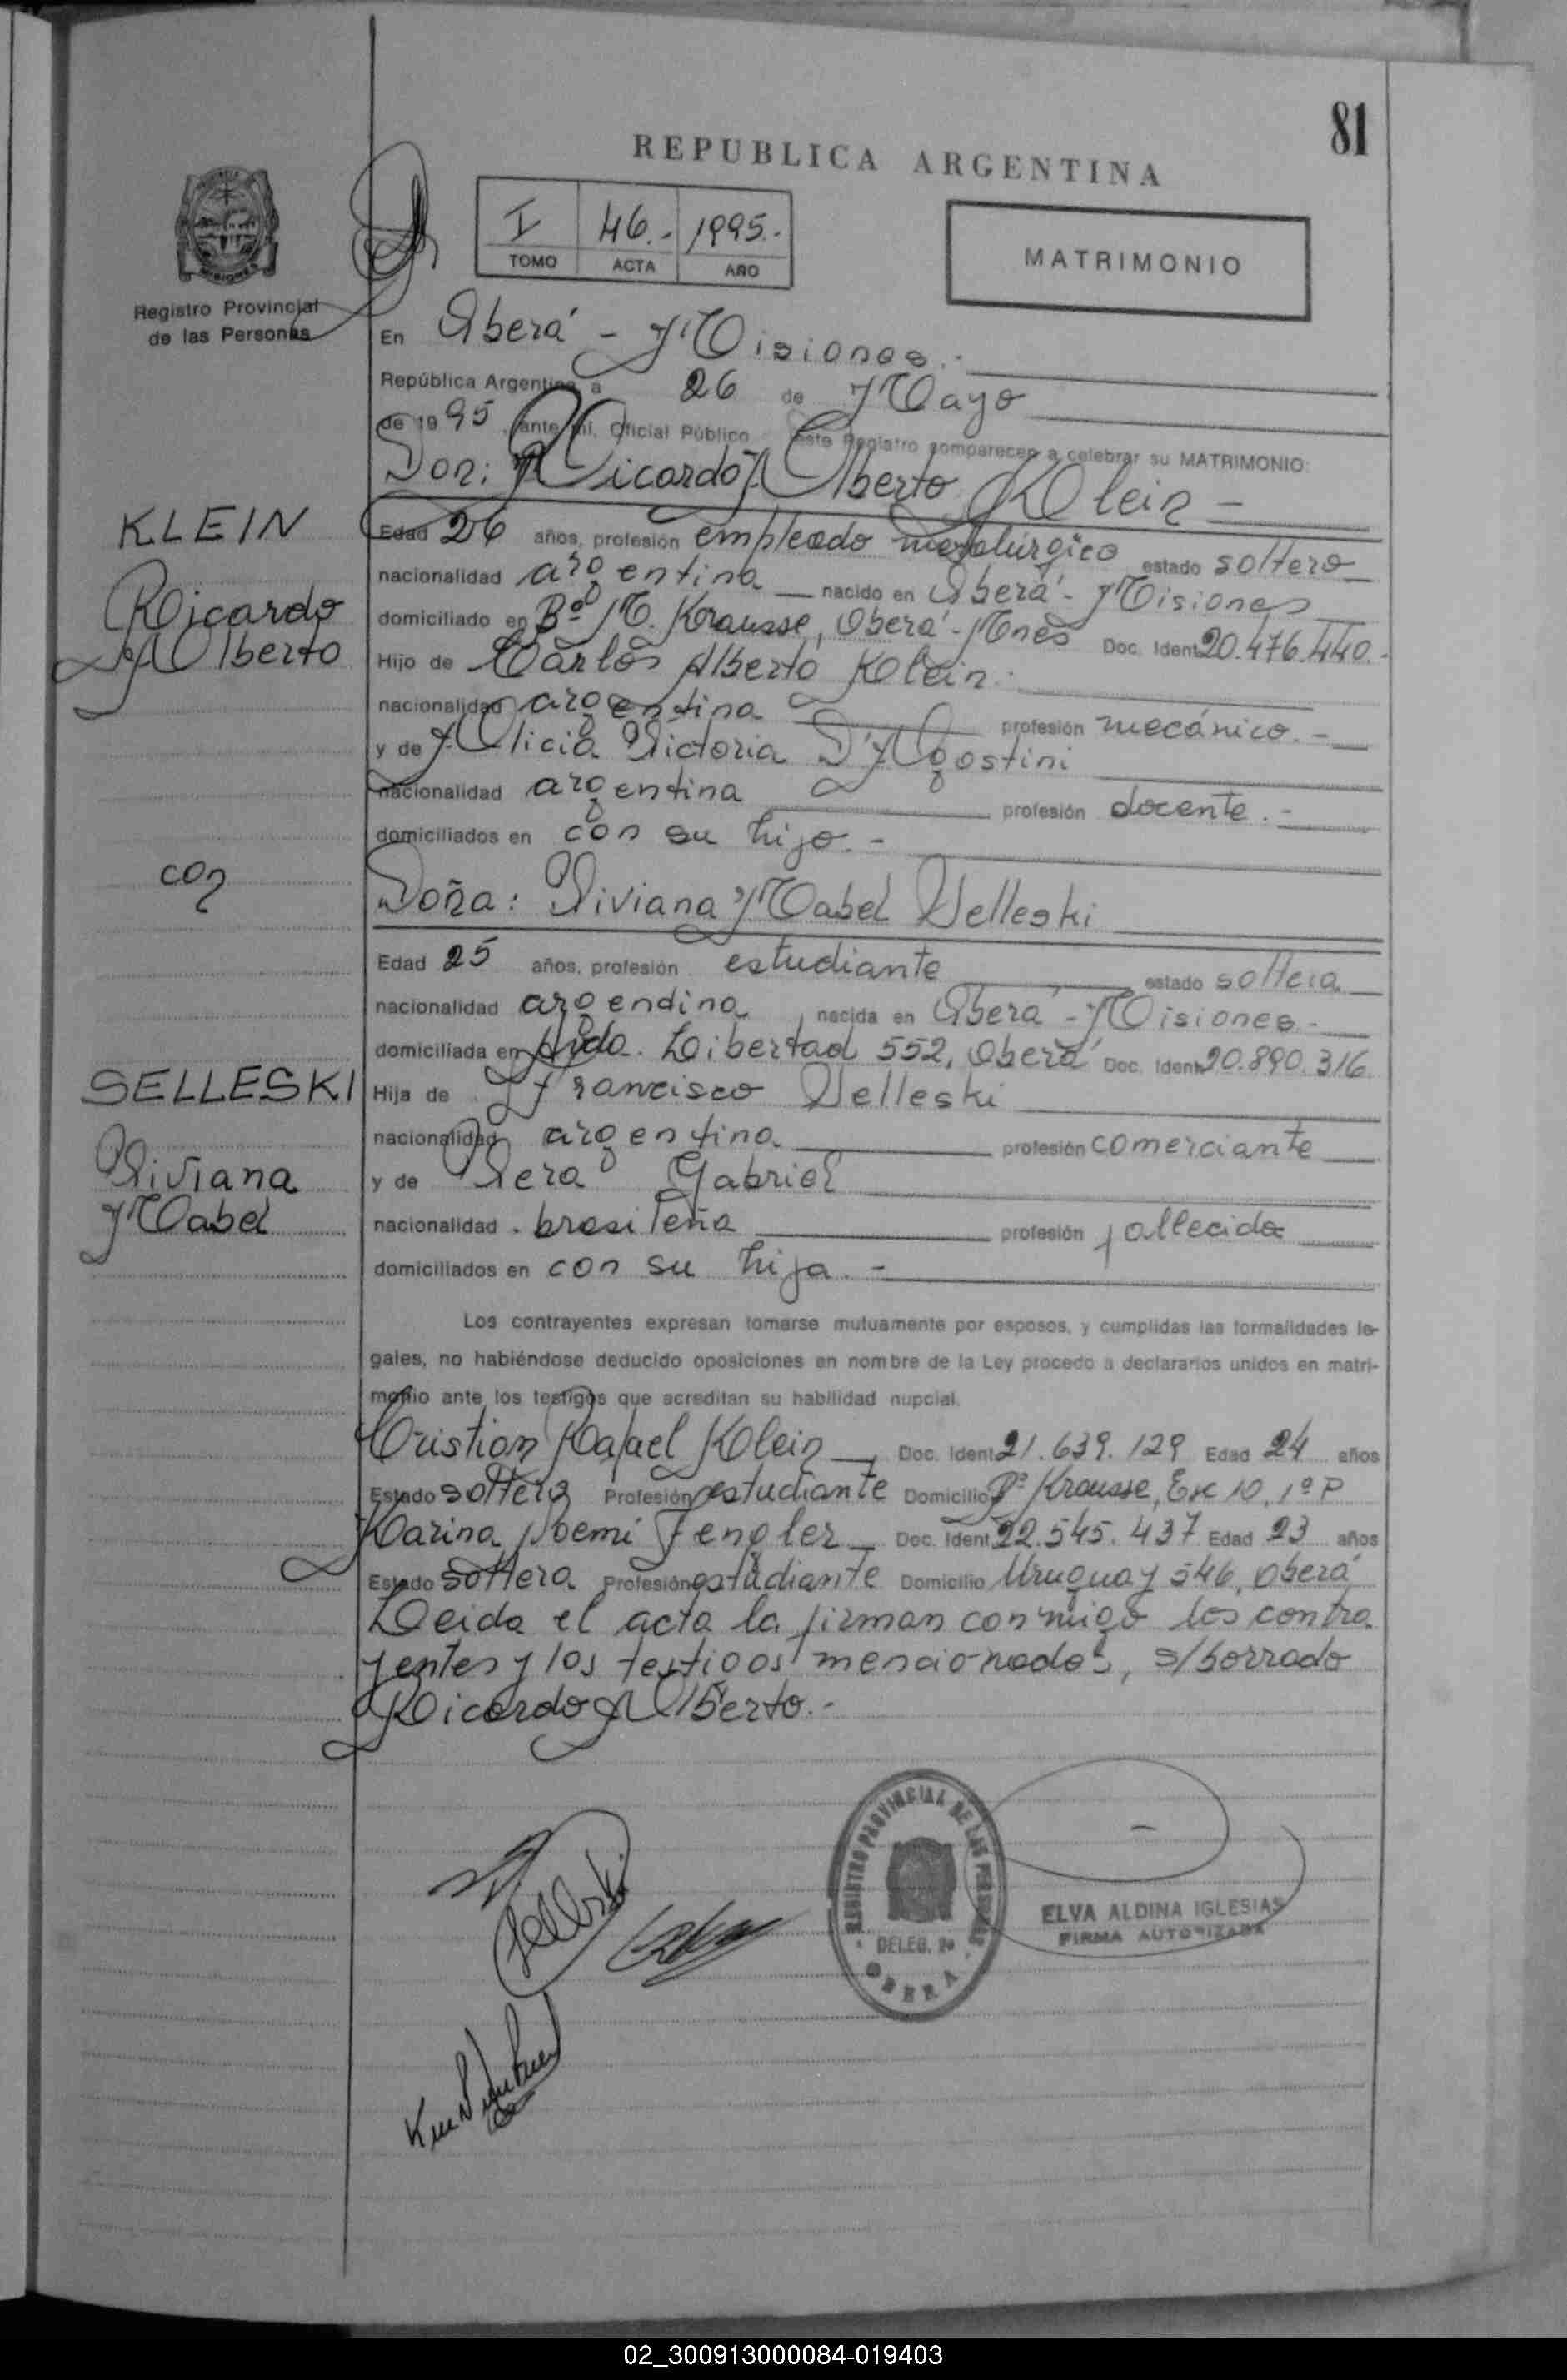 81
REPUBLICA ARGENTINA
I 46.- 1995.-
TOMO ACTA AÑO
MATRIMONIO
Registro Provincial
de las Personas
En Oberá - Misiones.-
República Argentina a 26 de Mayo
de 1995, ante mí, Oficial Público este Registro comparecen a celebrar su MATRIMONIO:
Don: Ricardo Alberto Klein -
KLEIN
Ricardo
Alberto
Edad 26 años, profesión empleado metalúrgico estado soltero
nacionalidad argentina nacido en Oberá - Misiones
domiciliado en Bº M. Krausse, Oberá - Mnes Doc. Ident. 20.476.440.-
Hijo de Carlos Alberto Klein.
nacionalidad argentina profesión mecánico.-
y de Alicia Victoria D'Agostini
nacionalidad argentina profesión docente.-
domiciliados en con su hijo.-
con
Doña: Viviana Mabel Selleski
Edad 25 años, profesión estudiante estado soltera
nacionalidad argendina nacida en Oberá - Misiones -
domiciliada en Avda. Libertad 552, Oberá Doc. Ident. 20.890.316
SELLESKI
Viviana
Mabel
Hija de Francisco Selleski
nacionalidad argentina profesión comerciante
y de Vera Gabriel
nacionalidad brasileña profesión fallecida
domiciliados en con su hija.-
Los contrayentes expresan tomarse mutuamente por esposos, y cumplidas las formalidades le-
gales, no habiéndose deducido oposiciones en nombre de la Ley procedo a declararlos unidos en matri-
monio ante los testigos que acreditan su habilidad nupcial.
Cristian Rafael Klein Doc. Ident. 21.639.129 Edad 24 años
Estado soltero Profesión estudiante Domicilio Bº Krausse, Esc 10, 1º P
Karina Noemí Fengler Doc. Ident. 22.545.437 Edad 23 años
Estado soltera Profesión estudiante Domicilio Uruguay 546, Oberá
Leida el acta la firman conmigo los contra
yentes y los testigos mencionados, s/borrado
Ricardo Alberto.-
Selleski
REGISTRO PROVINCIAL DE LAS PERSONAS
DELEG. 2a
OBERA
ELVA ALDINA IGLESIAS
FIRMA AUTORIZADA
02_300913000084-019403